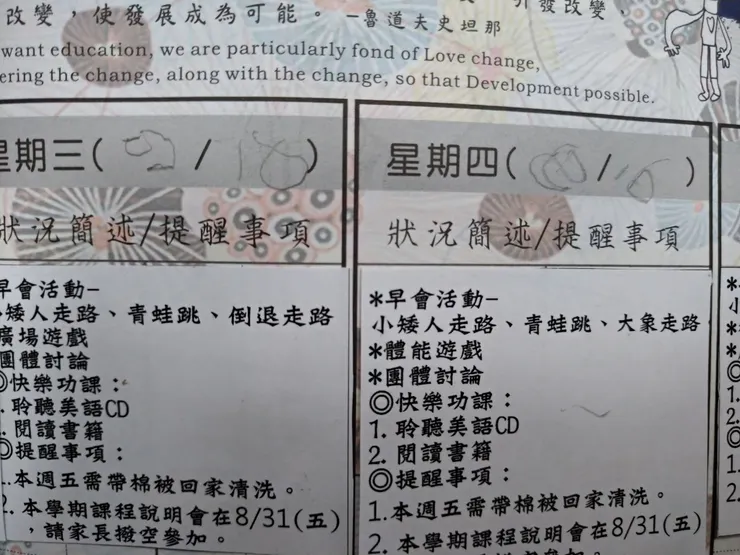 改變，使發展成為可能。—魯道夫史坦那
引發改變
want education, we are particularly fond of Love change,
ering the change, along with the change, so that Development possible.
星期三( / 18)
狀況簡述/提醒事項
早會活動–
矮人走路、青蛙跳、倒退走路
廣場遊戲
團體討論
◎快樂功課：
. 聆聽美語CD
. 閱讀書籍
◎提醒事項：
1.本週五需帶棉被回家清洗。
2.本學期課程說明會在8/31(五)
，請家長撥空參加。
星期四( / )
狀況簡述/提醒事項
*早會活動–
小矮人走路、青蛙跳、大象走路
*體能遊戲
*團體討論
◎快樂功課：
1. 聆聽美語CD
2. 閱讀書籍
◎提醒事項：
1.本週五需帶棉被回家清洗。
2.本學期課程說明會在8/31(五)